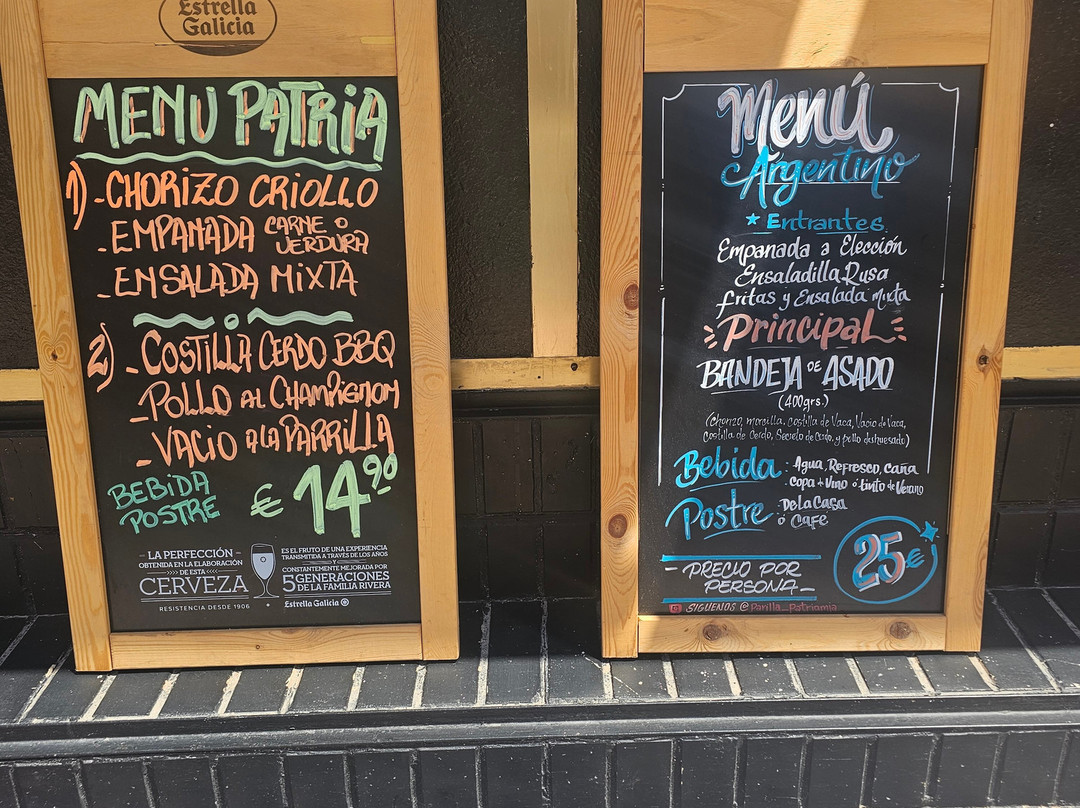 Estrella
Galicia
MENU PATRIA
1) - CHORIZO CRIOLLO
- EMPANADA CARNE O
VERDURA
- ENSALADA MIXTA
2) - COSTILLA CERDO BBQ
- POLLO AL CHAMPIGNOM
- VACIO A LA PARRILLA
BEBIDA
POSTRE
€ 14'90
LA PERFECCIÓN
OBTENIDA EN LA ELABORACIÓN
DE ESTA
CERVEZA
RESISTENCIA DESDE 1906
ES EL FRUTO DE UNA EXPERIENCIA
TRANSMITIDA A TRAVÉS DE LOS AÑOS
Y
CONSTANTEMENTE MEJORADA POR
5 GENERACIONES
DE LA FAMILIA RIVERA
Estrella Galicia
Menú
Argentino
★ Entrantes
Empanada a Elección
Ensaladilla Rusa
fritas y Ensalada mixta
Principal
BANDEJA DE ASADO
(400grs.)
(Chorizo, morcilla, costilla de Vaca, Vacio de Vaca,
Costilla de Cerdo, Secreto de Cerdo, y pollo deshuesado)
Bebida - Agua, Refresco, caña
copa de Vino ó tinto de Verano
Postre De La Casa
ó CAFE
- PRECIO POR
PERSONA -
25€
SIGUENOS @Parilla_Patriamia